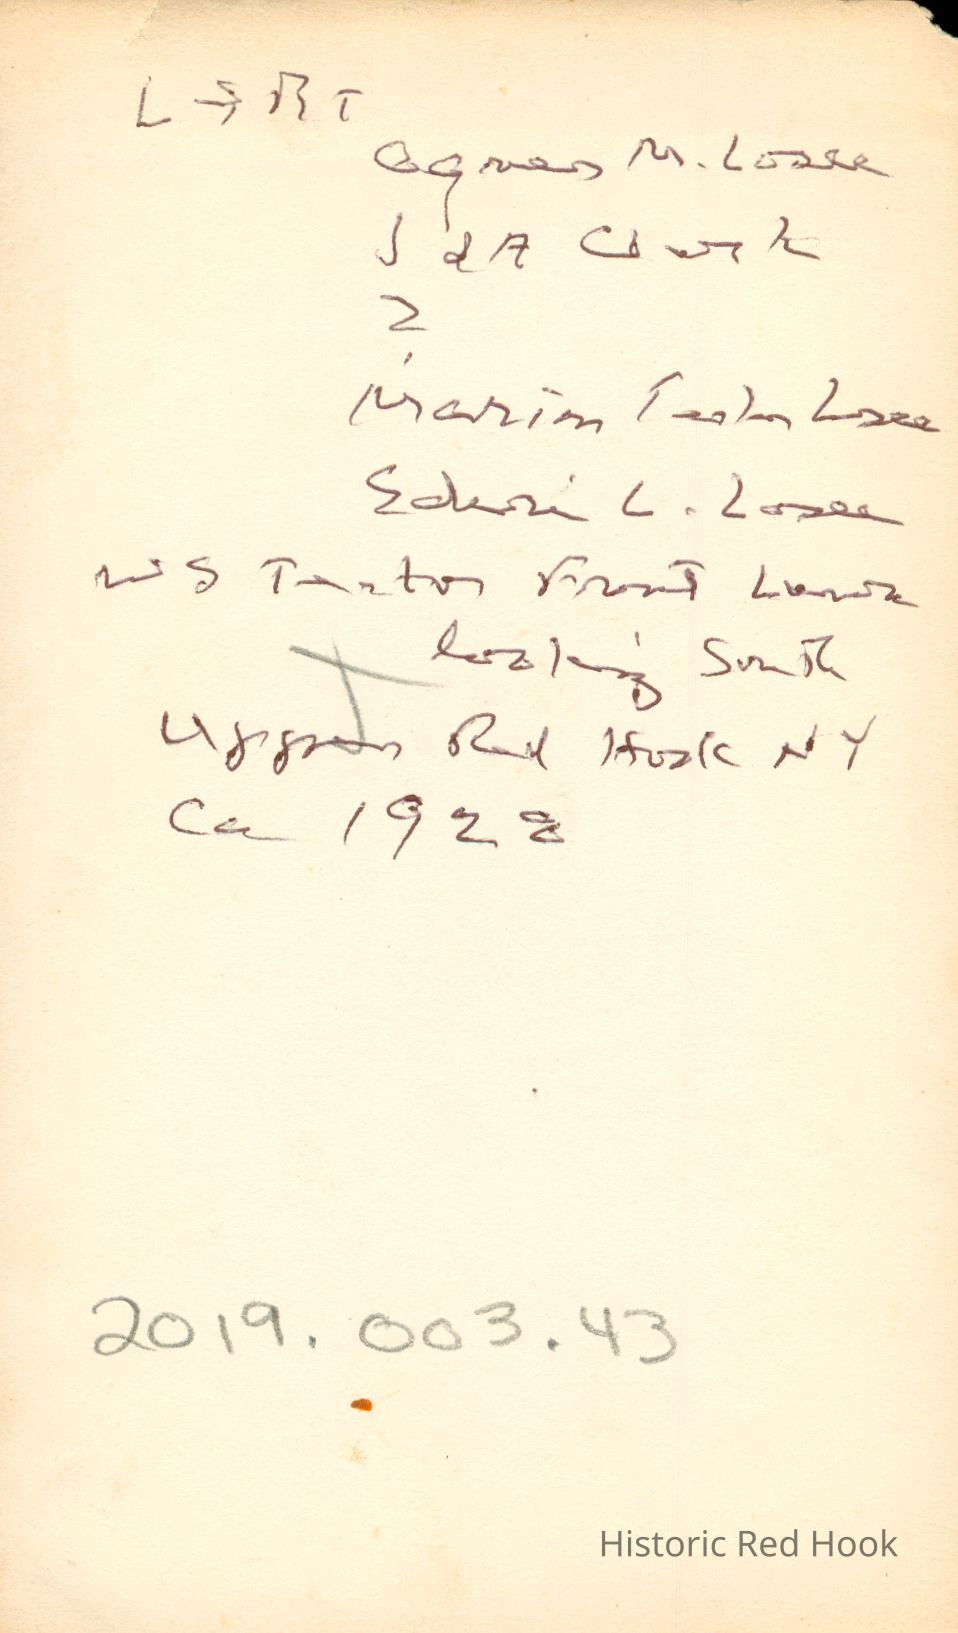 L → RT
Agnes M. Losee
Ida Clark
?
Marion Teator Losee
Edwin L. Losee
WS Teator Front Lawn
looking South
Upper Red Hook NY
Ca 1928
2019.003.43
Historic Red Hook